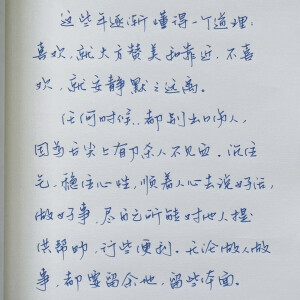 这些年逐渐懂得一个道理:
喜欢,就大方赞美和靠近,不喜
欢,就安静默默远离。
任何时候,都别出口伤人,
因为舌尖上有刀杀人不见血。沉住
气,稳住心性,顺着人心去说好话,
做好事,尽自己所能对他人提
供帮助,行些便利。无论做人做
事,都要留余地,留些体面。